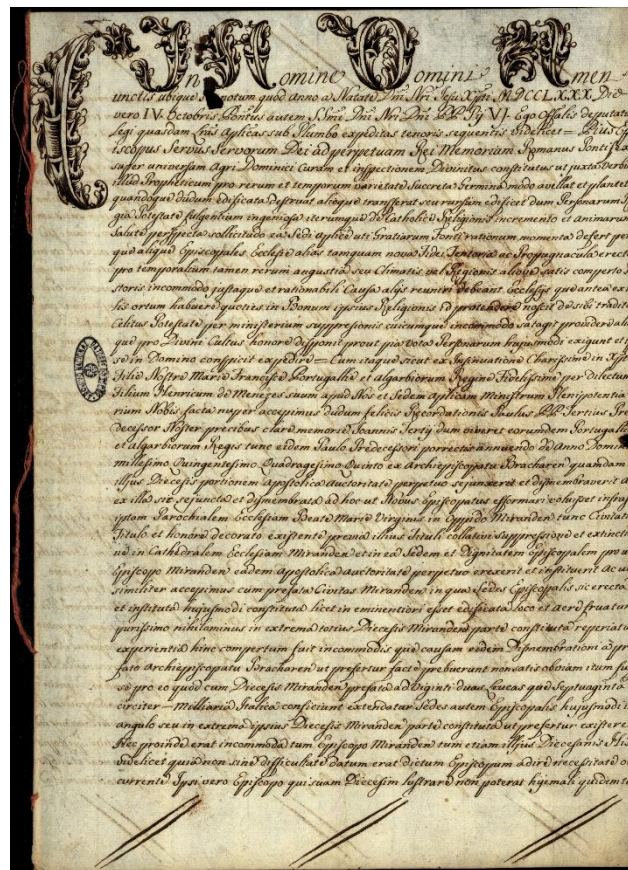 In Nomine Domini Amen
Cunctis ubique notum quod Anno a Natate Dni Nri Jesu Xpti MDCCLXXX Die
vero IV Octobris Pontus autem SSmi Dni Nri Dni PP Pij VI Ego Offalis deputatus
legi quasdam Lras Aplicas sub Plumbo expeditas tenoris sequentis Videlicet = Pius Ep
iscopus Servus Servorum Dei ad perpetuam Rei Memoriam Romanus Pontifex
super universam Agri Dominici Curam et inspectionem Divinitus constitutus ut juxta Verbu
illud Propheticum pro rerum et temporum varietate Succreta Germina modo avellat et plantet
quandoque dudum edificata destruat alioque transferat seu rursum edificet dum Personarum R
gia Potestate fulgentium ingeniosa iterumque de Catholice Religionis incremento et animarum
Salute perspecta sollicitudo ea Sedi aplice uti Gratiarum Fonti rationum momenta defert pro
que alique Episcopales Ecclesie alias tamquam nova Fidei Tentoria ac Propugnacula erecte
pro temporalium tamen rerum angustia seu Climatis vel Regionis aliove satis comperto
storis incommodo justaque et rationabili Causa alijs reuniri debeant Ecclesijs que dantea ex
lis ortum habuere quoties in Bonum ipsius Religionis id protendere noscit desibi tradita
Celitus Potestate per ministerium suppressionis cuicumque incommodo satagit providere ali
que pro Divini Cultus honore disponit prout pia vota Personarum hujusmodi exigunt et ip
se in Domino conspicit expedire = Cum itaque sicut ex Insinuatione Charissime in Xpto
Filie Nostre Marie Francisce Portugallie et Algarbiorum Regine Fidelissime per dilectum
Filium Henricum de Menezes suum apud Nos et Sedem Aplicam Ministrum Plenipotentia
rium Nobis facta nuper accepimus dudum felicis Recordationis Paulus PP Tertius Pre
decessor Noster precibus clare memorie Joannis Tertij dum viveret eorumdem Portugalli
et Algarbiorum Regis tunc eidem Paulo Predecessori porrectis annuendo de Anno Domini
millesimo Quingentesimo Quadragesimo Quinto ex Archiepiscopatu Bracharen quamdam
illius Diecesis portionem Apostolica Auctoritate perpetuo sejunxerit et dismembraverit a
ex illa sic sejuncta et dismembrata ad hoc ut Novus Episcopatus efformari voluisset infra
iptam Parochialem Ecclesiam Beate Marie Virginis in Oppido Miranden tunc Civitati
Titulo et honore decorato existente previa illius Tituli collativi suppressione et extinctio
ne in Cathedralem Ecclesiam Miranden et in ea Sedem et Dignitatem Episcopalem pro u
Episcopo Miranden eadem Apostolica auctoritate perpetuo erexerit et instituerit ac u
similiter accepimus cum prefata Civitas Miranden in qua Sedes Episcopalis sic erecta
et instituta hujusmodi constituta licet in eminentiori esset edificata loco et aere fruatur
purissimo nihilominus in extrema totius Diecesis Miranden parte constituta reperiatu
experientia hinc compertum fuit incommodis que causam eidem Dismembrationi a pre
fato Archiepiscopatu Bracharen ut prefertur facte prebuerunt non satis obviam itum fui
se pro eo quod cum Diecesis Miranden prefata ad Viginti duas Leucas que Septuaginta
circiter Milliaria Italica conficiunt extendatur Sedes autem Episcopalis hujusmodi i
angulo seu in extrema ipsius Diecesis Miranden parte constituta ut prefertur existere
Hec proinde erat incommoda tum Episcopo Miranden tum etiam illius Diecesanis His
videlicet quia non sine difficultate datum erat dictum Episcopum adire necessitate o
currente Ipsi vero Episcopo qui suam Diecesim lustrare non poterat hyemali quidem t